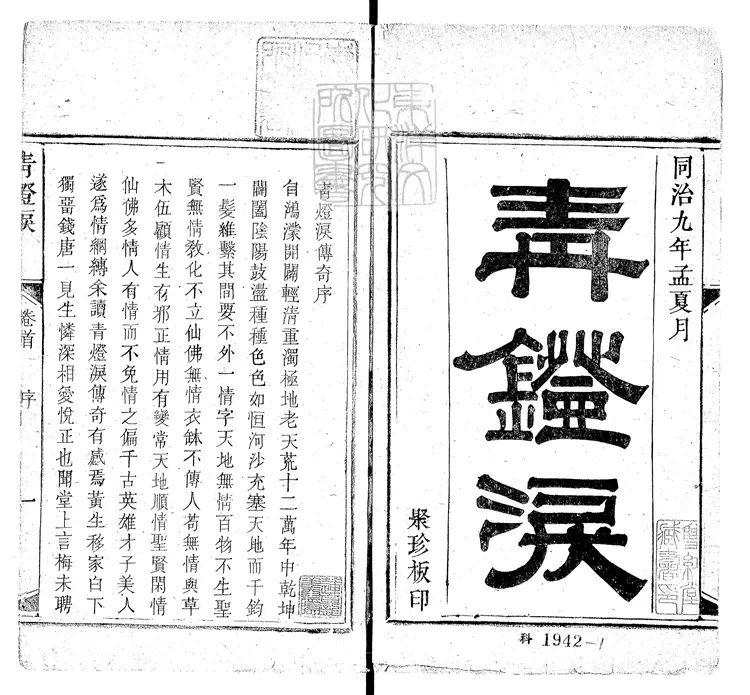 同治九年孟夏月
青鐙淚
聚珍板印
科 1942-1
青燈淚傳奇序
自鴻濛開闢輕清重濁極地老天荒十二萬年中乾坤
闔闢陰陽鼓盪種種色色如恒河沙充塞天地而千鈞
一髮維繫其間要不外一情字天地無情百物不生聖
賢無情教化不立仙佛無情衣鉢不傳人苟無情與草
木伍顧情生有邪正情用有變常天地順情聖賢閑情
仙佛多情人有情而不免情之偏千古英雄才子美人
遂爲情綱縛矣讀青燈淚傳奇有感焉黃生移家白下
獨畱錢唐一見生憐深相愛悅正也聞堂上言梅未聘
青燈淚
卷首
序
一